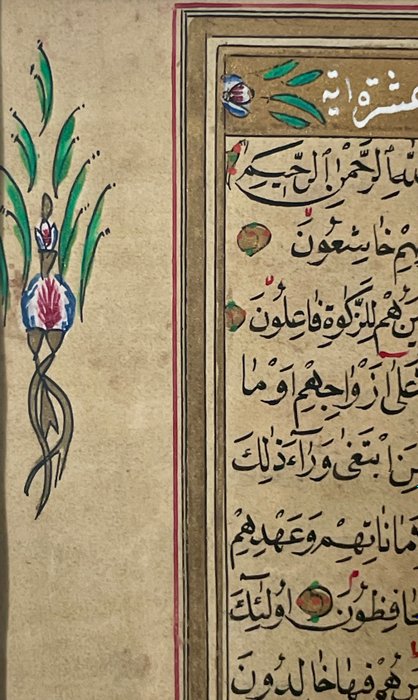 عشرة اية
لله الرَّحْمٰنِ الرَّحِيمِ
هِمْ خَاشِعُونَ
ينَ هُمْ لِلزَّكٰوةِ فَاعِلُونَ
عَلٰى اَزْوَاجِهِمْ اَوْ مَا
مَنِ ابْتَغٰى وَرَٓاءَ ذٰلِكَ
مَانَاتِهِمْ وَعَهْدِهِمْ
حَافِظُونَ اُولٰٓئِكَ
هُمْ فِيهَا خَالِدُونَ